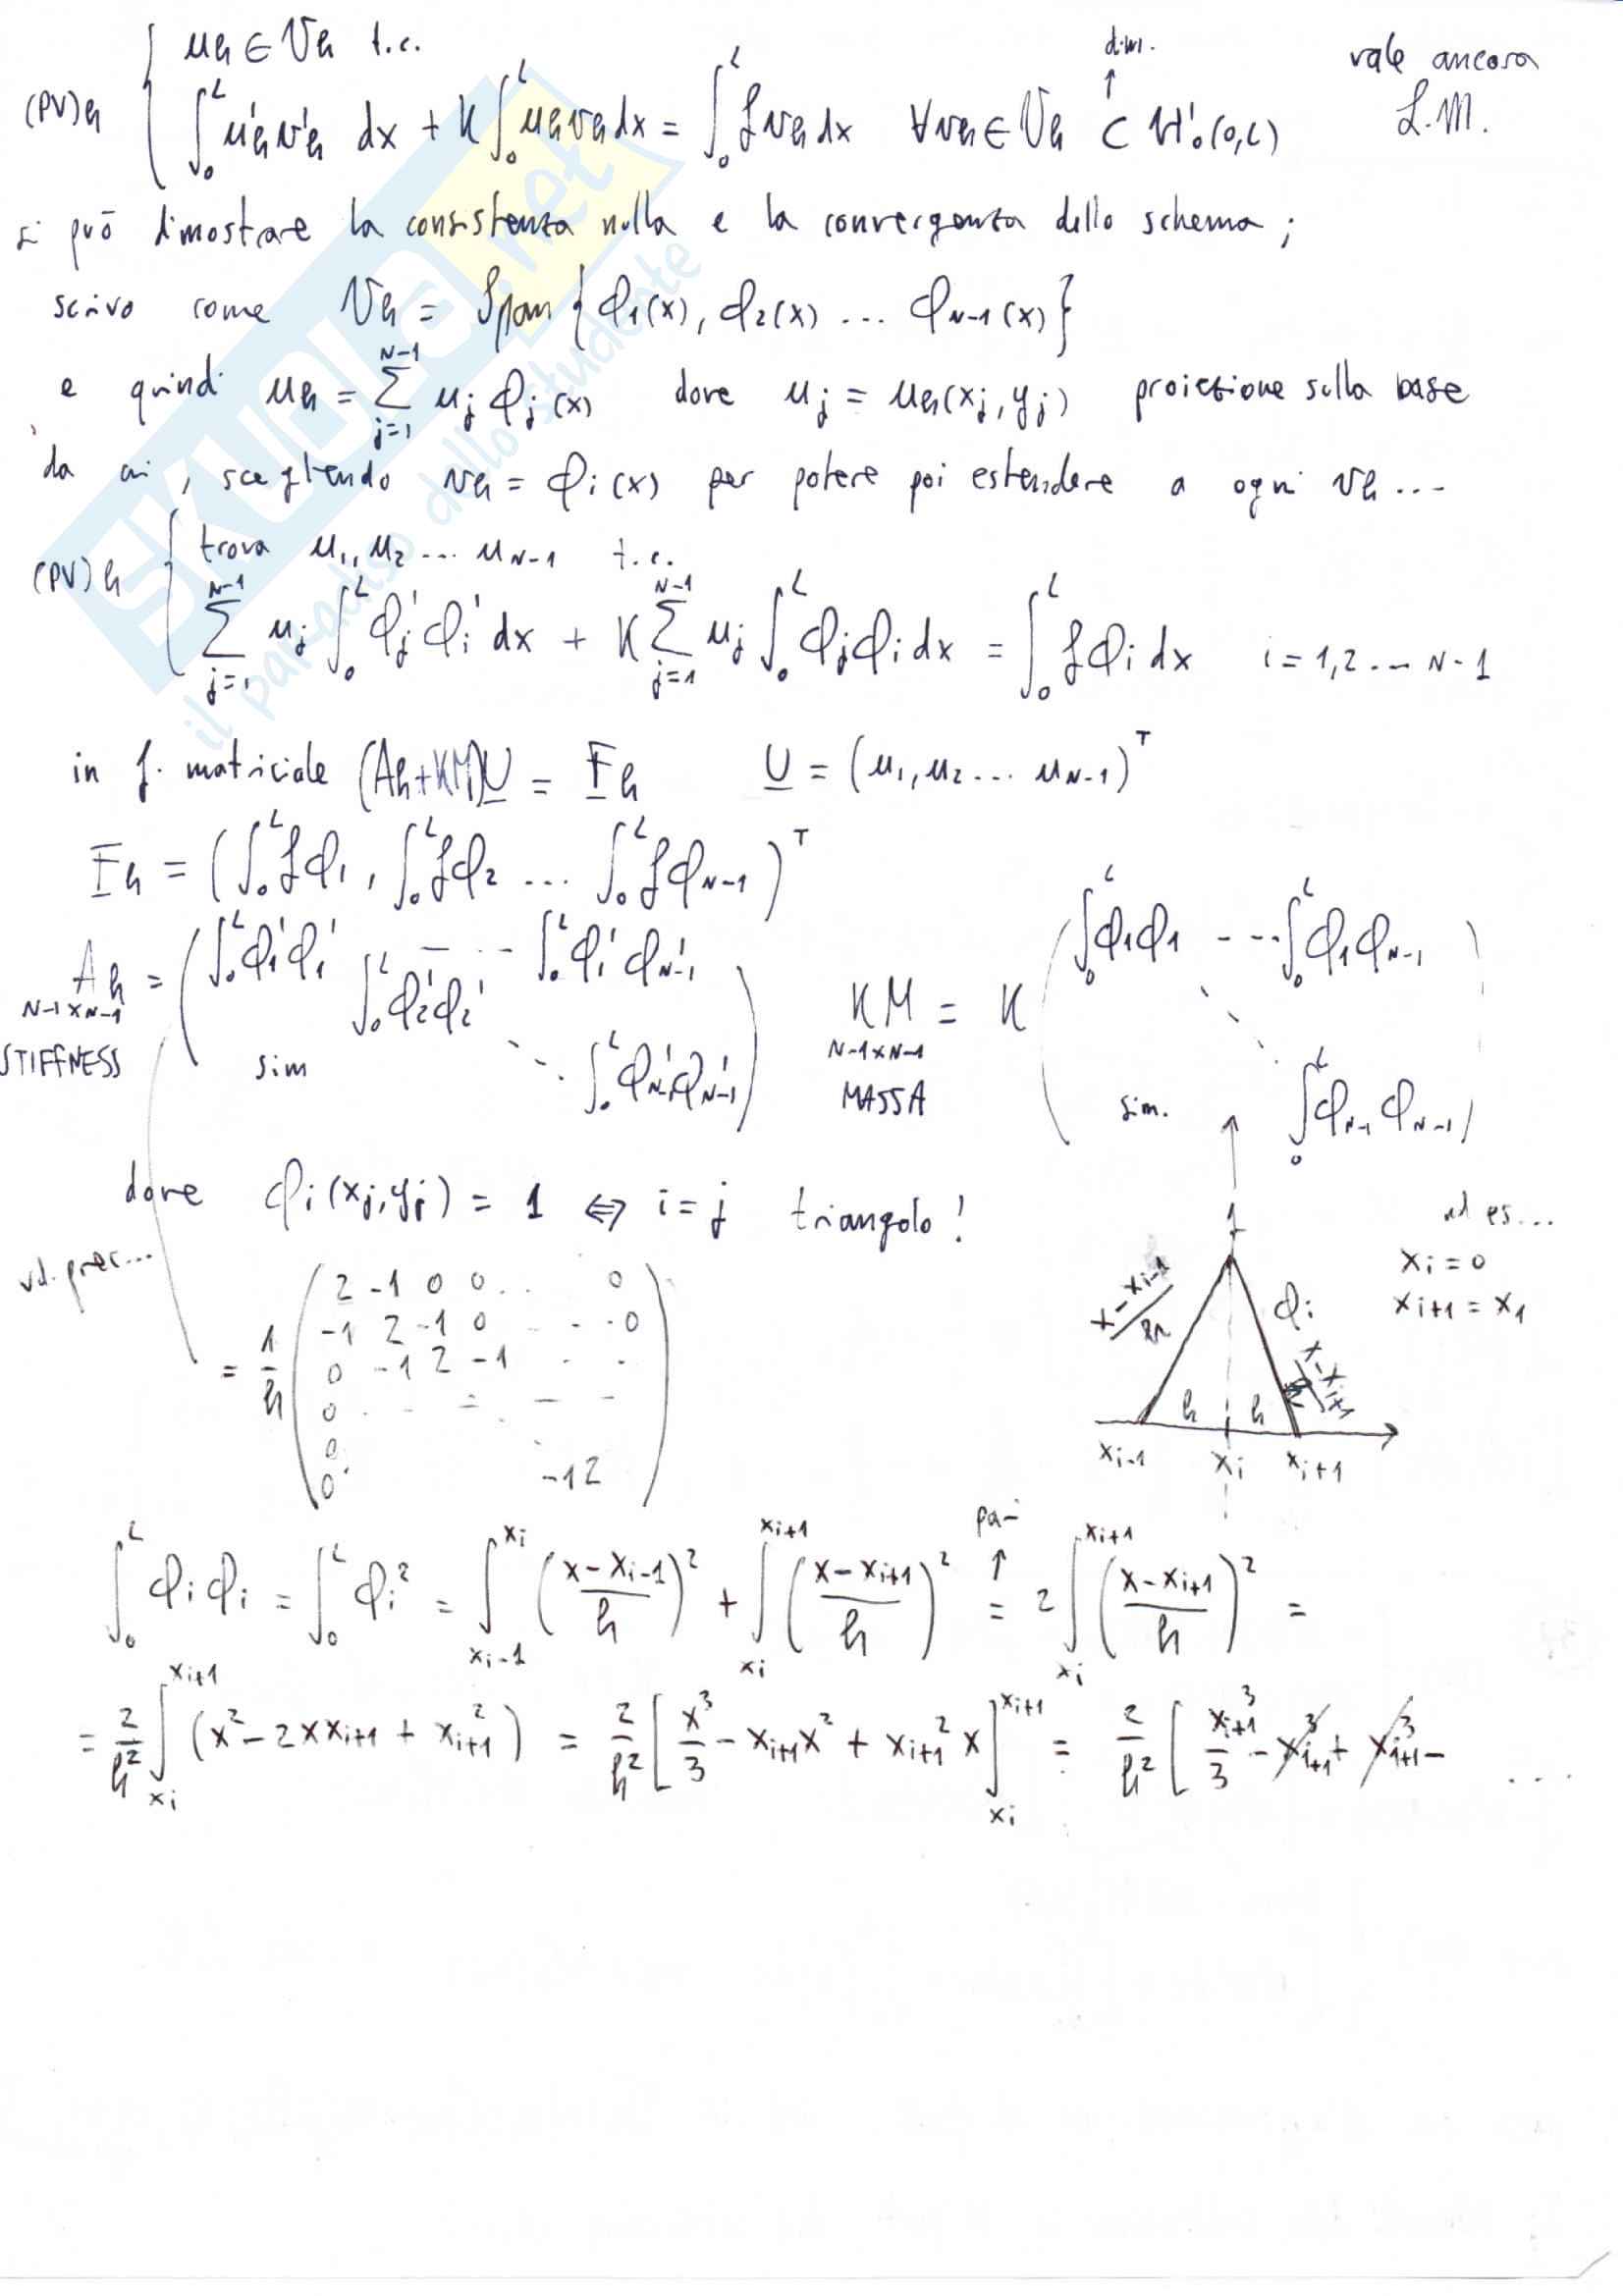 (PV)h { uh ∈ Vh t.c.
∫₀ᴸ u'h v'h dx + K ∫₀ᴸ uh vh dx = ∫₀ᴸ f vh dx ∀vh ∈ Vh ⊂ H¹₀(0,L) vale ancora L.M.
si può dimostrare la consistenza nulla e la convergenza dello schema;
scrivo come Vh = Span { φ₁(x), φ₂(x) ... φN-1(x) }
e quindi uh = Σ_{j=1}^{N-1} uj φj(x) dove uj = uh(xj, yj) proiezione sulla base
da cui, scegliendo vh = φi(x) per potere poi estendere a ogni vh ...
(PV)h { trova u₁, u₂ ... uN-1 t.c.
Σ_{j=1}^{N-1} uj ∫₀ᴸ φj' φi' dx + K Σ_{j=1}^{N-1} uj ∫₀ᴸ φj φi dx = ∫₀ᴸ f φi dx i = 1,2 ... N-1
in f. matriciale (Ah+KM)U = Fh U = (u₁, u₂ ... uN-1)ᵀ
Fh = (∫₀ᴸ fφ₁, ∫₀ᴸ fφ₂ ... ∫₀ᴸ fφN-1)ᵀ
Ah = ( ∫₀ᴸ φ₁'φ₁' - - - ∫₀ᴸ φ₁'φN-1'
∫₀ᴸ φ₂'φ₂'
sim ∫₀ᴸ φN-1'φN-1' )
N-1×N-1
STIFFNESS
KM = K ( ∫₀ᴸ φ₁φ₁ - - - ∫₀ᴸ φ₁φN-1
sim. ∫₀ᴸ φN-1 φN-1 )
N-1×N-1
MASSA
dove φi(xj,yj) = 1 ⇔ i = j triangolo!
vd. prec...
= 1/h ( 2 -1 0 0 . . 0
-1 2 -1 0 - - - 0
0 -1 2 -1 - -
0 - - - -
0
0 -1 2 )
1
φi
x-xi-1/h
h h
xi-1 xi xi+1
ad es...
xi = 0
xi+1 = x₁
∫₀ᴸ φi φi = ∫₀ᴸ φi² = ∫_{xi-1}^{xi} ((x-xi-1)/h)² + ∫_{xi}^{xi+1} ((x-xi+1)/h)² = 2 ∫_{xi}^{xi+1} ((x-xi+1)/h)² =
= 2/h² ∫_{xi}^{xi+1} (x² - 2xxi+1 + xi+1²) = 2/h² [x³/3 - xi+1x² + xi+1² x]_{xi}^{xi+1} = 2/h² [xi+1³/3 - xi+1³ + xi+1³ - ...
SKUOLA.net
il paradiso dello studente